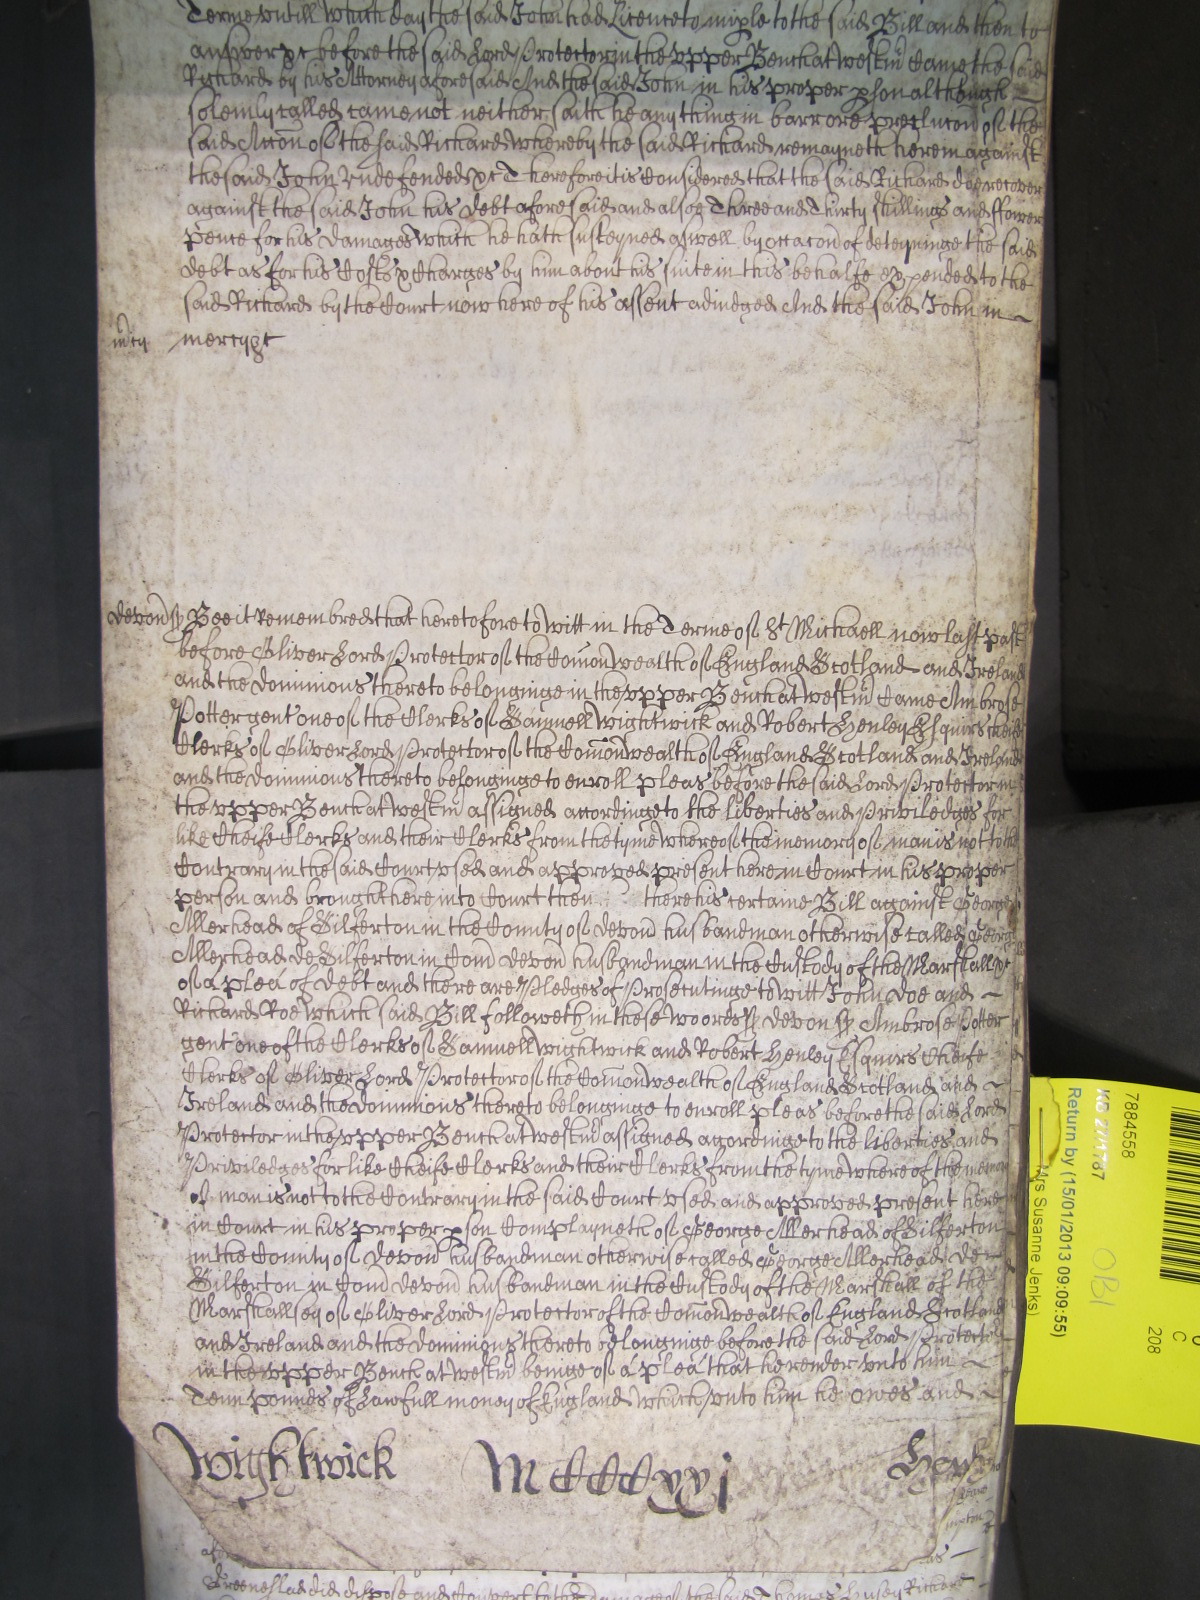 Terme untill which day the said John had Licence to imple to the said Bill and then to
answer &c before the said Lord Protector in the upper Bench at Westm̄ came the said
Richard by his Attorney aforesaid And the said John in his proper pson although
solemly called came not neither saith he any thing in barr or preclucon of the
said Accon of the said Richard Whereby the said Richard remayneth herein against
the said John Undefended &c Therefore it is Considered that the said Richard doe recover
against the said John his debt aforesaid and alsoe Three and Thirty shillings and ffower
pence for his damages which he hath susteyned aswell by occacon of deteyninge the said
debt as for his Costs & Charges by him about his suite in this behalfe expended to the
said Richard by the Court now here of his assent adiudged And the said John in
mcy mercy &c
Devon ss Bee it Remembred that heretofore to witt in the Terme of St Michaell now last past
before Oliver Lord Protector of the Com̄onwealth of England Scotland and Ireland
and the dominions thereto belonginge in the upper Bench at Westm̄ Came Ambrose
Potter gent one of the Clerks of Samuell Wightwick and Robert Henley Esquirs cheife
Clerks of Oliver Lord Protector of the Com̄onwealth of England Scotland and Ireland
and the dominions thereto belonginge to enroll pleas before the said Lord Protector in
the upper Bench at Westm̄ assigned accordinge to the liberties and Priviledges for
like Cheife Clerks and their Clerks from the tyme whereof the memory of man is not to the
Contrary in the said Court used and approved present here in Court in his proper
person and brought here into Court then there his certaine Bill against George
Allerhead of Silferton in the County of Devon husbandman otherwise called George
Allerhead De Silferton in Com̄ Devon husbandman in the Custody of the Marshall &c
of a plea of Debt and there are Pledges of Prosecutinge to witt John Doe and
Richard Roe which said Bill followeth in these woords ss Devon ss Ambrose Potter
gent one of the Clerks of Samuell Wightwick and Robert Henley Esquirs Cheife
Clerks of Oliver Lord Protector of the Com̄onwealth of England Scotland and
Ireland and the dominions thereto belonginge to enroll pleas before the said Lord
Protector in the upper Bench at Westm̄ assigned accordinge to the liberties and
Priviledges for like Cheife Clerks and their Clerks from the tyme whereof the memory
of man is not to the Contrary in the said Court used and approved present here
in Court in his proper pson Complayneth of George Allerhead of Silferton
in the County of Devon husbandman otherwise called George Allerhead de
Silferton in Com̄ Devon husbandman in the Custody of the Marshall of the
Marshallsey of Oliver Lord Protector of the Com̄onwealth of England Scotland
and Ireland and the dominions thereto belonginge before the said Lord Protector
in the upper Bench at Westm̄ beinge of a plea that he render unto him
Tenn pounds of Lawfull money of England which unto him he owes and
Wightwick MCCCCxxj Henley
as
Greenslad did dispose and Convert to the damage of the said Richard
7884558
KB 27/1787
Return by (15/01/2013 09:09:55)
Mrs Susanne Jenks)
OBI
C
208